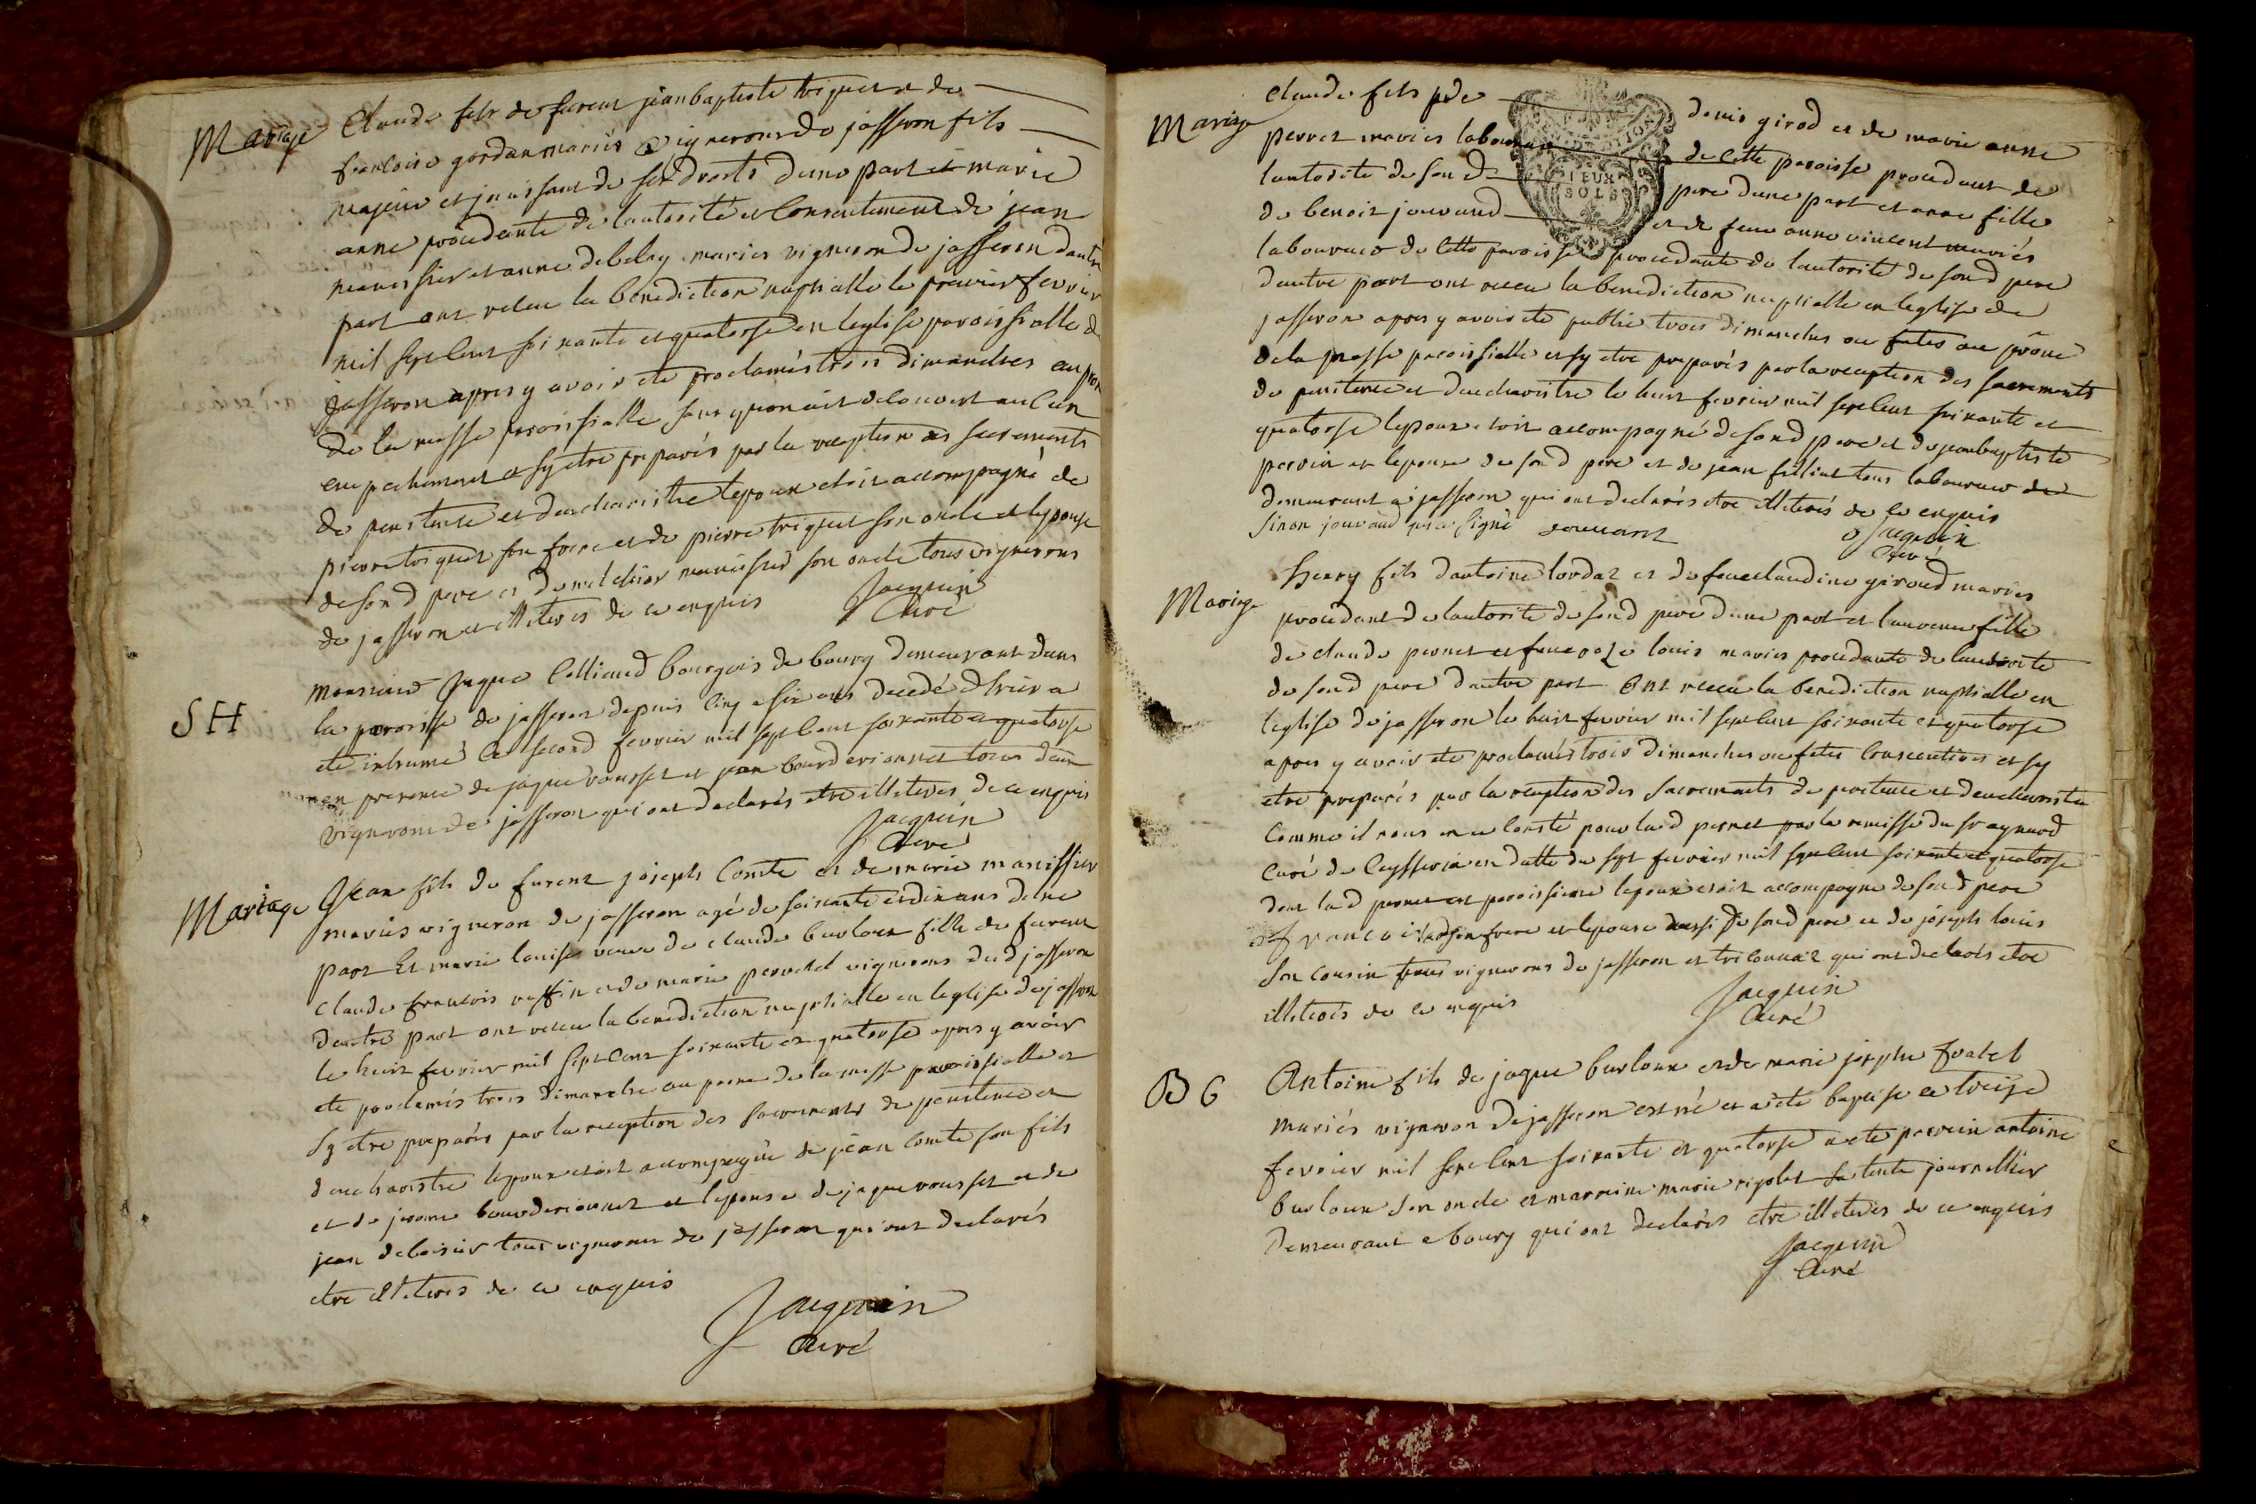 Mariage
Claude fils de furent jeanbaptiste triquet et de
francoise gordan mariés vignerons de jasseron fils
majeur et jouissant de ses droits dune part et marie
anne procedante de lautorité et consentement de jean
manissier et anne debelay mariés vigneron de jasseron dautre
part ont receu la benediction nuptialle le premier fevrier
mil sept cent soixante et quatorse en leglise paroissialle de
jasseron apres y avoir eté proclamés trois dimanches au prone
de la messe paroissialle sans quon ait decouvert aucun
empechement et sy etre preparés par la reception des sacrements
de penitence et deucharistie lepoux etoit accompagné de
pierre triquet son frere et de pierre triquet son oncle et lepouse
de sond pere et de melchior manissier son oncle tous vignerons
de jasseron et illiterés de ce enquis
Jacquin
Curé
SH
Monsieur Jaque Colliaud bourgeois de bourg demeurant dans
la paroisse de jasseron depuis cinq a six ans decedé dhier a
eté inhumé ce second fevrier mil sept cent soixante et quatorse
en presence de jaque rousset et jean bourderionnet tous deux
vignerons de jasseron qui ont declarés etre illiterés de ce enquis
Jacquin
Curé
Mariage
Jean fils de furent joseph Comte et de marie manissier
mariés vigneron de jasseron agé de soixante et dix ans dune
part Et marie louise veuve de claude burloux fille de furent
claude francois ruffin et de marie perochet vignerons dud jasseron
dautre part ont receu la benediction nuptialle en leglise de jasseron
le huit fevrier mil sept cent soixante et quatorse apres y avoir
eté proclamés trois dimanche au prone de la messe paroissialle et
sy etre preparés par la reception des sacrements de penitence et
deucharistie lepoux etoit accompagné de jean comte son fils
et de jerome bourderionnet et lepouse de jaque rousset et de
jean deloisir tous vignerons de jasseron qui ont declarés
etre illiterés de ce enquis
Jacquin
Curé
Mariage
Claude fils de denis girod et de marie anne
perret mariés laboureurs de cette paroisse procedant de
lautorité de son d pere dune part et anne fille
de benoit jouvand et de feue anne vincent mariés
laboureurs de cette paroisse procedante de lautorité de son d pere
dautre part ont receu la benediction nuptialle en leglise de
jasseron apres y avoir eté publié trois dimanches ou fetes au prône
de la messe paroissialle et sy etre preparés par la reception des sacrements
de penitence et deucharistie le huit fevrier mil sept cent soixante et
quatorse lepoux etoit accompagné de son d pere et de jeanbaptiste
perrin et lepouse de son d pere et de jean filliat tous laboureurs
demeurant a jasseron qui ont declarés etre illiterés de ce enquis
sinon jouvand qui a signé jouvant
Jacquin
Curé
Mariage
Henry fils dantoine lordat et de feue claudine giroud mariés
procedant de lautorité de son d pere dune part et laurence fille
de claude pernet et feue louis mariés procedante de lautorité
de son d pere dautre part ont receu la benediction nuptialle en
leglise de jasseron le huit fevrier mil sept cent soixante et quatorse
apres y avoir eté proclamés trois dimanches ou fetes consecutives et sy
etre preparés par la reception des sacrements de penitence et deucharistie
comme il nous en a consté pour lad pernet par la remisse du sr aynard
curé de Ceysseria en datte du sept fevrier mil sept cent soixante et quatorse
dont lad pernet est paroissienne lepoux etoit accompagne de son d pere
françois son frere et lepouse aussi de son d pere et de joseph louis
son cousin tous vignerons de jasseron et triconnaz qui ont declarés etre
illiterés de ce enquis
Jacquin
Curé
B 6
Antoine fils de jaque burloux et de marie josephe foatel
mariés vigneron de jasseron est né et a eté baptise ce treize
fevrier mil sept cent soixante et quatorse a eté parrein antoine
burloux son oncle et marreine marie rigolet sa tente journallier
demeurant a bourg qui ont declarés etre illiterés de ce enquis
Jacquin
Curé